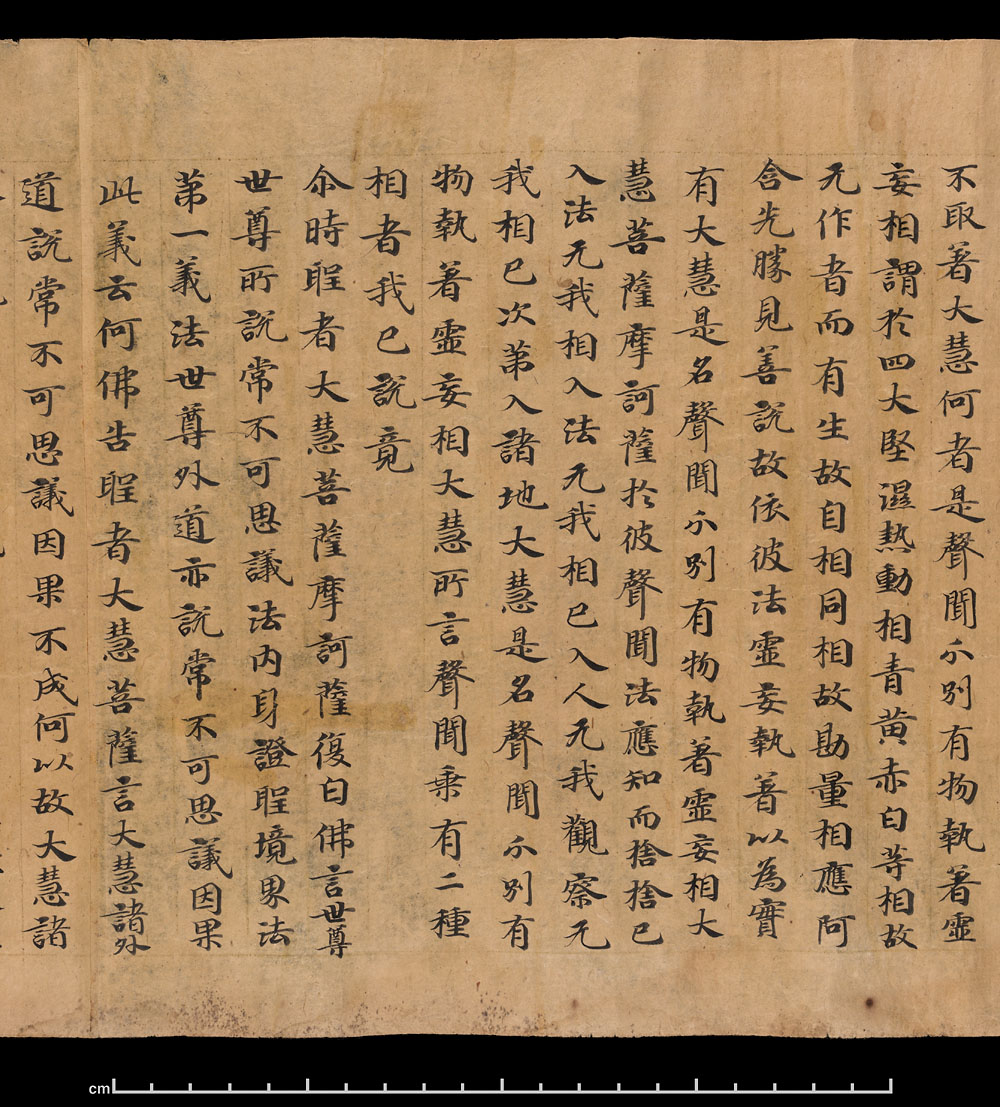 不取著大慧何者是聲聞分別有物執著虛
妄相謂於四大堅濕熱動相青黃赤白等相故
无作者而有生故自相同相故勘量相應阿
含先勝見善說故依彼法虛妄執著以為實
有大慧是名聲聞分別有物執著虛妄相大
慧菩薩摩訶薩於彼聲聞法應知而捨捨已
入法无我相入法无我相已入人无我觀察无
我相已次第入諸地大慧是名聲聞分別有
物執著虛妄相大慧所言聲聞乘有二種
相者我已說竟
尒時聖者大慧菩薩摩訶薩復白佛言世尊
世尊所說常不可思議法內身證聖境界法
第一義法世尊外道亦說常不可思議因果
此義云何佛告聖者大慧菩薩言大慧諸外
道說常不可思議因果不成何以故大慧諸